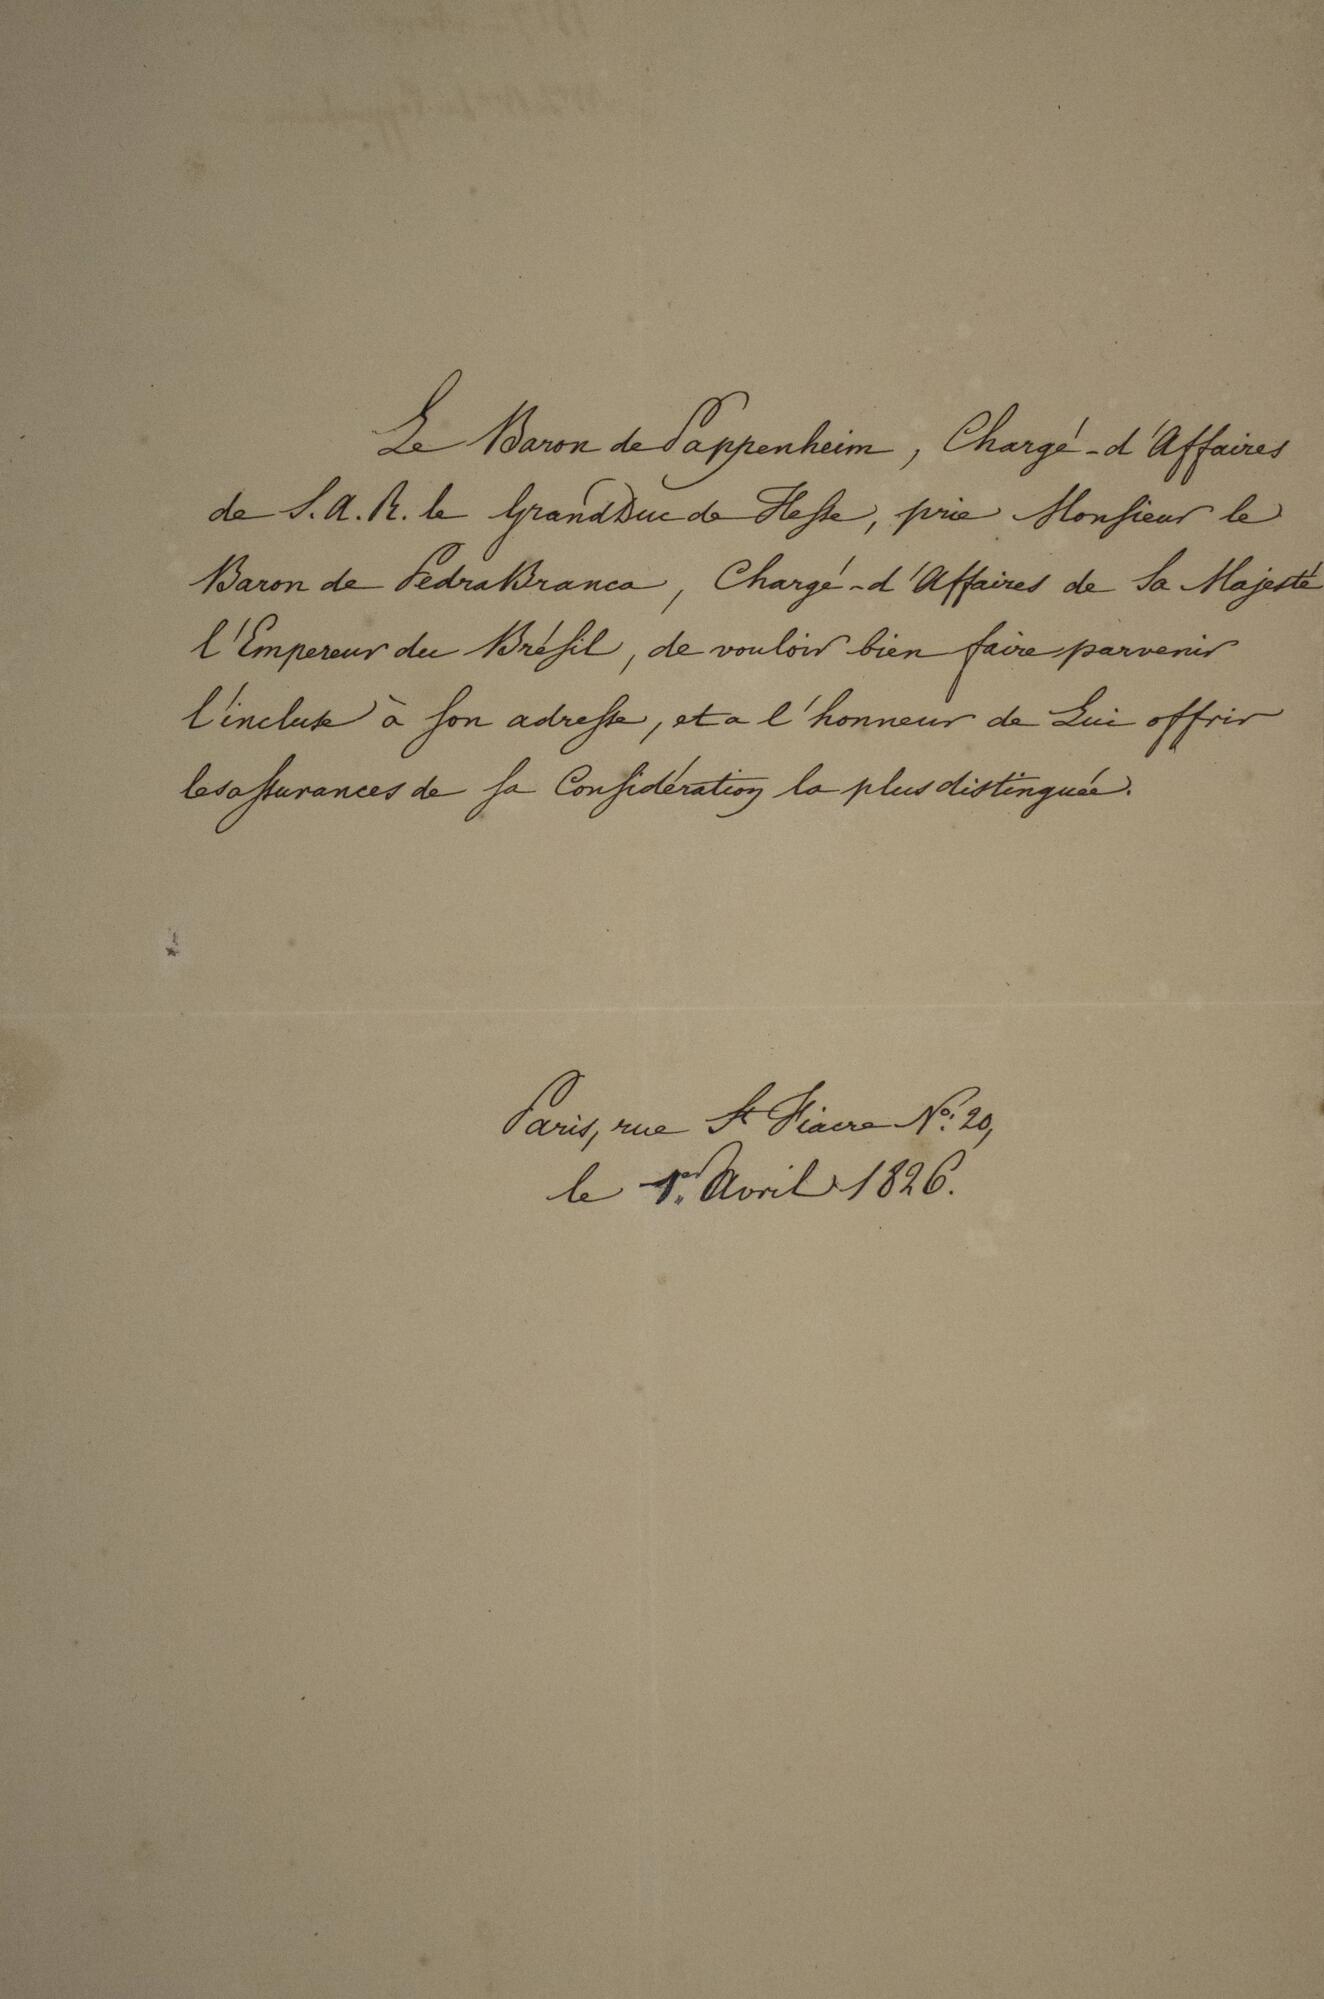 Le Baron de Pappenheim, Chargé-d'Affaires
de S.A.R. le Grand Duc de Hesse, prie Monsieur le
Baron de Pedra Branca, Chargé-d'Affaires de Sa Majesté
l'Empereur du Brésil, de vouloir bien faire parvenir
l'incluse à son adresse, et a l'honneur de Lui offrir
les assurances de sa Considération la plus distinguée.
Paris, rue St Fiacre No: 20,
le 1er Avril 1826.